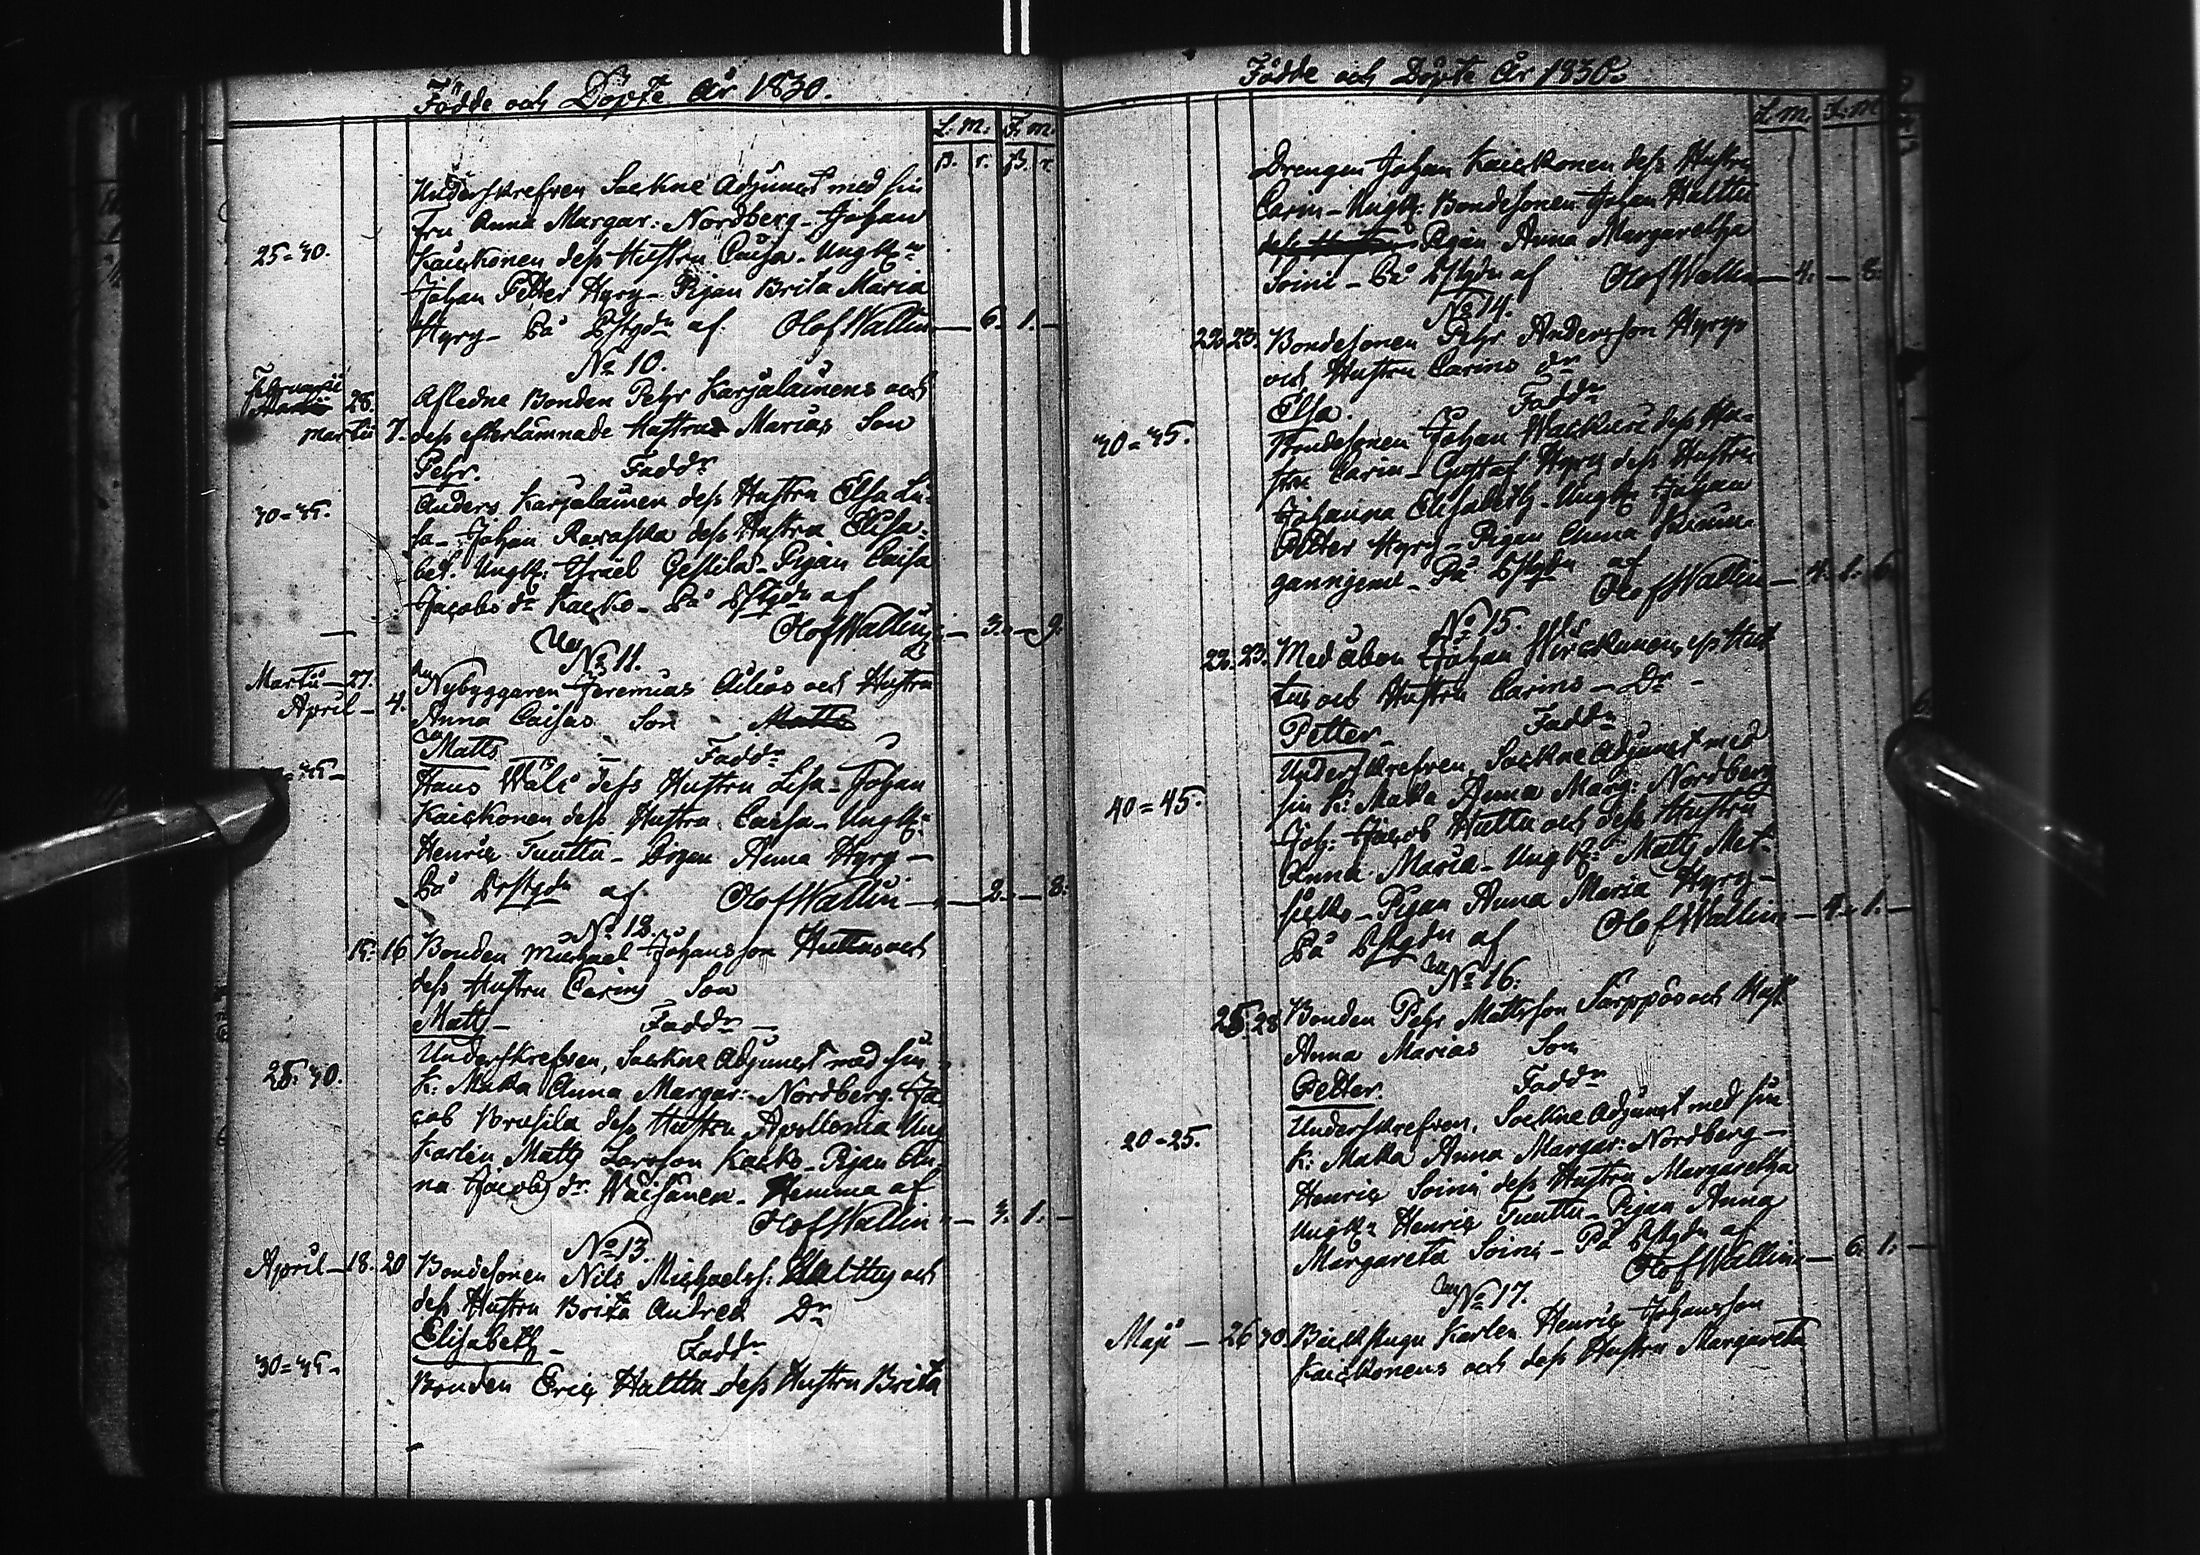 Födde och Döpte År 1830.
L. m. F. m.
B. r. B. r.
Underskrefven Sockne Adjunct med sin
Fru Anna Margar: Nordberg - Johan
25=30. Kaickonen dess Hustru Caisa - Ungk:
Johan Petter Hyry - Pigan Brita Maria
Hyry - På af Olof Wallin — 6. 1. —
No 10.
Februarii 28. Afledne Bonden Pehr Karjalainens och
Martii 7. dess efterlämnade Hustrus Marias Son
Pehr. Faddr
30=35. Anders Karjalainen dess Hustru Elsa Li-
sa - Johan Karaska dess Hustru Elisa-
bet. Ungk: Israel Gestila - Pigan Caisa
Jacobs dr Kacko - På af
Olof Wallin — 3. — 9.
No 11.
Martii — 27. Nybyggaren Jeremias och Hustru
April — 4. Anna Caisas Son Matts
Matts — Faddr
Hans Wäli dess Hustru Lisa - Johan
Kaickonen dess Hustru Caisa - Ungk:
Henric Tuuttu - Pigan Anna Hyry —
På af Olof Wallin — 2. — 8.
No 12.
15. 16 Bonden Michael Johansson Huttus och
dess Hustru Carins Son
Matts — Faddr —
Underskrefven, Sockne Adjunct med sin
25. 30. K: Maka Anna Margar: Nordberg. Ja-
cob Brusila dess Hustru Apollonia Ung
Karlen Matts Larsson Kacko - Pigan An-
na Jacobs dr. Wäisänen - Hemma af
Olof Wallin — 3. 1. —
No 13.
April — 18. 20 Bondesonen Nils Michaelss: Halttus och
dess Hustru Brita Andreæ Dr
Elisabeth — Faddr
30=35 — Bonden Eric Halttu dess Hustru Brita
Födde och Döpte År 1830.
L. m. F. m.
Drengen Johan Kaickonen dess Hustru
Carin - Ungk: Bondesonen Johan Halttu
Pigan Anna Margaretha
Soini - På af Olof Wallin — 4. — 8.
No 14.
22. 23. Bondesonen Pehr Andersson Hyrys
och Hustru Carins dr
Elsa. Faddr
40=45. Bondesonen Johan dess Hu-
stru Carin - Gustaf Hyry dess Hustru
Johanna Elisabeth - Ungk: Johan
Petter Hyry - Pigan Anna
— På af
Olof Wallin — 4. 1. 6.
No 15.
22. 23. Med åbon Johan Wirckunen
och Hustru Carins — Dr —
Petter — Faddr
Underskrefven, Sockne Adjunct med
40=45. sin K: Maka Anna Marg: Nordberg
Joh: Jacob Huttu och dess Hustru
Anna Maria - Ungk: Matts Met-
— Pigan Anna Maria Hyry —
På af Olof Wallin — 4. 1. —
No 16.
25. 28 Bonden Pehr Mattsson Särppäs och Hust
Anna Marias Son
Petter. Faddr
Underskrefven, Sockne Adjunct med sin
20=25. K: Maka Anna Margar: Nordberg —
Henric Soini dess Hustru Margaretha
Ungk: Henric Tuuttu - Pigan Anna
Margareta Soini - På af
Olof Wallin — 6. 1. —
No 17.
Maji — 26 30. Backstugu Karlen Henric Johansson
Kaickonens och dess Hustru Margareta